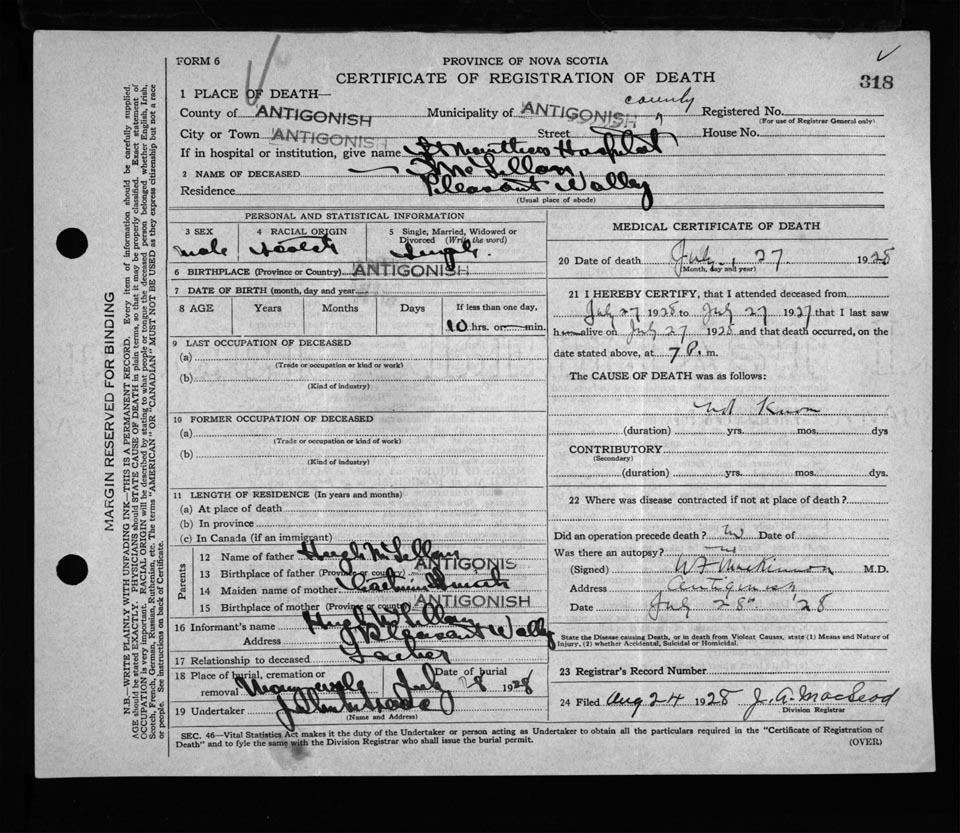 FORM 6
PROVINCE OF NOVA SCOTIA
CERTIFICATE OF REGISTRATION OF DEATH
318
1 PLACE OF DEATH—
County of ANTIGONISH Municipality of ANTIGONISH county Registered No.
(For use of Registrar General only)
City or Town ANTIGONISH Street House No.
If in hospital or institution, give name St Marthas Hospital
2 NAME OF DECEASED — McLellan
Residence Pleasant Valley
(Usual place of abode)
PERSONAL AND STATISTICAL INFORMATION
3 SEX 4 RACIAL ORIGIN 5 Single, Married, Widowed or Divorced (Write the word)
male Scotch Single.
6 BIRTHPLACE (Province or Country) ANTIGONISH
7 DATE OF BIRTH (month, day and year)
8 AGE Years Months Days If less than one day,
10 hrs. or min.
9 LAST OCCUPATION OF DECEASED
(a)
(Trade or occupation or kind or work)
(b)
(Kind of industry)
10 FORMER OCCUPATION OF DECEASED
(a)
(Trade or occupation or kind of work)
(b)
(Kind of industry)
11 LENGTH OF RESIDENCE (In years and months)
(a) At place of death
(b) In province
(c) In Canada (if an immigrant)
Parents
12 Name of father Hugh McLellan
13 Birthplace of father (Province or Country) ANTIGONIS
14 Maiden name of mother
15 Birthplace of mother (Province or Country) ANTIGONISH
16 Informant's name Hugh McLellan
Address Pleasant Valley
17 Relationship to deceased Father
18 Place of burial, cremation or removal Date of burial July 28 1928
19 Undertaker
(Name and Address)
MEDICAL CERTIFICATE OF DEATH
20 Date of death July 27 1928
(Month, day and year)
21 I HEREBY CERTIFY, that I attended deceased from
July 27 1928 to July 27 1927 that I last saw
h alive on July 27 1928 and that death occurred, on the
date stated above, at 7 P. m.
The CAUSE OF DEATH was as follows:
not Known
(duration) yrs. mos. dys
CONTRIBUTORY
(Secondary)
(duration) yrs. mos. dys.
22 Where was disease contracted if not at place of death?
Did an operation precede death? Date of
Was there an autopsy?
(Signed) MacKinnon M.D.
Address Antigonish
Date July 28 '28
State the Disease causing Death, or in death from Violent Causes, state (1) Means and Nature of
Injury, (2) whether Accidental, Suicidal or Homicidal.
23 Registrar's Record Number
24 Filed Aug 24 1928 J. A. MacLeod
Division Registrar
SEC. 46—Vital Statistics Act makes it the duty of the Undertaker or person acting as Undertaker to obtain all the particulars required in the "Certificate of Registration of
Death" and to fyle the same with the Division Registrar who shall issue the burial permit.
(OVER)
MARGIN RESERVED FOR BINDING
N.B.—WRITE PLAINLY WITH UNFADING INK—THIS IS A PERMANENT RECORD. Every item of information should be carefully supplied.
AGE should be stated EXACTLY. PHYSICIANS should STATE CAUSE OF DEATH in plain terms, so that it may be properly classified. Exact statement of
OCCUPATION is very important. RACIAL ORIGIN will be described by stating to what people or tongue the deceased person belonged whether English, Irish,
Scotch, French, German, Russian, Ruthenian, etc. The terms "AMERICAN" OR "CANADIAN" MUST NOT BE USED as they express citizenship but not a race
or people. See instructions on back of Certificate.